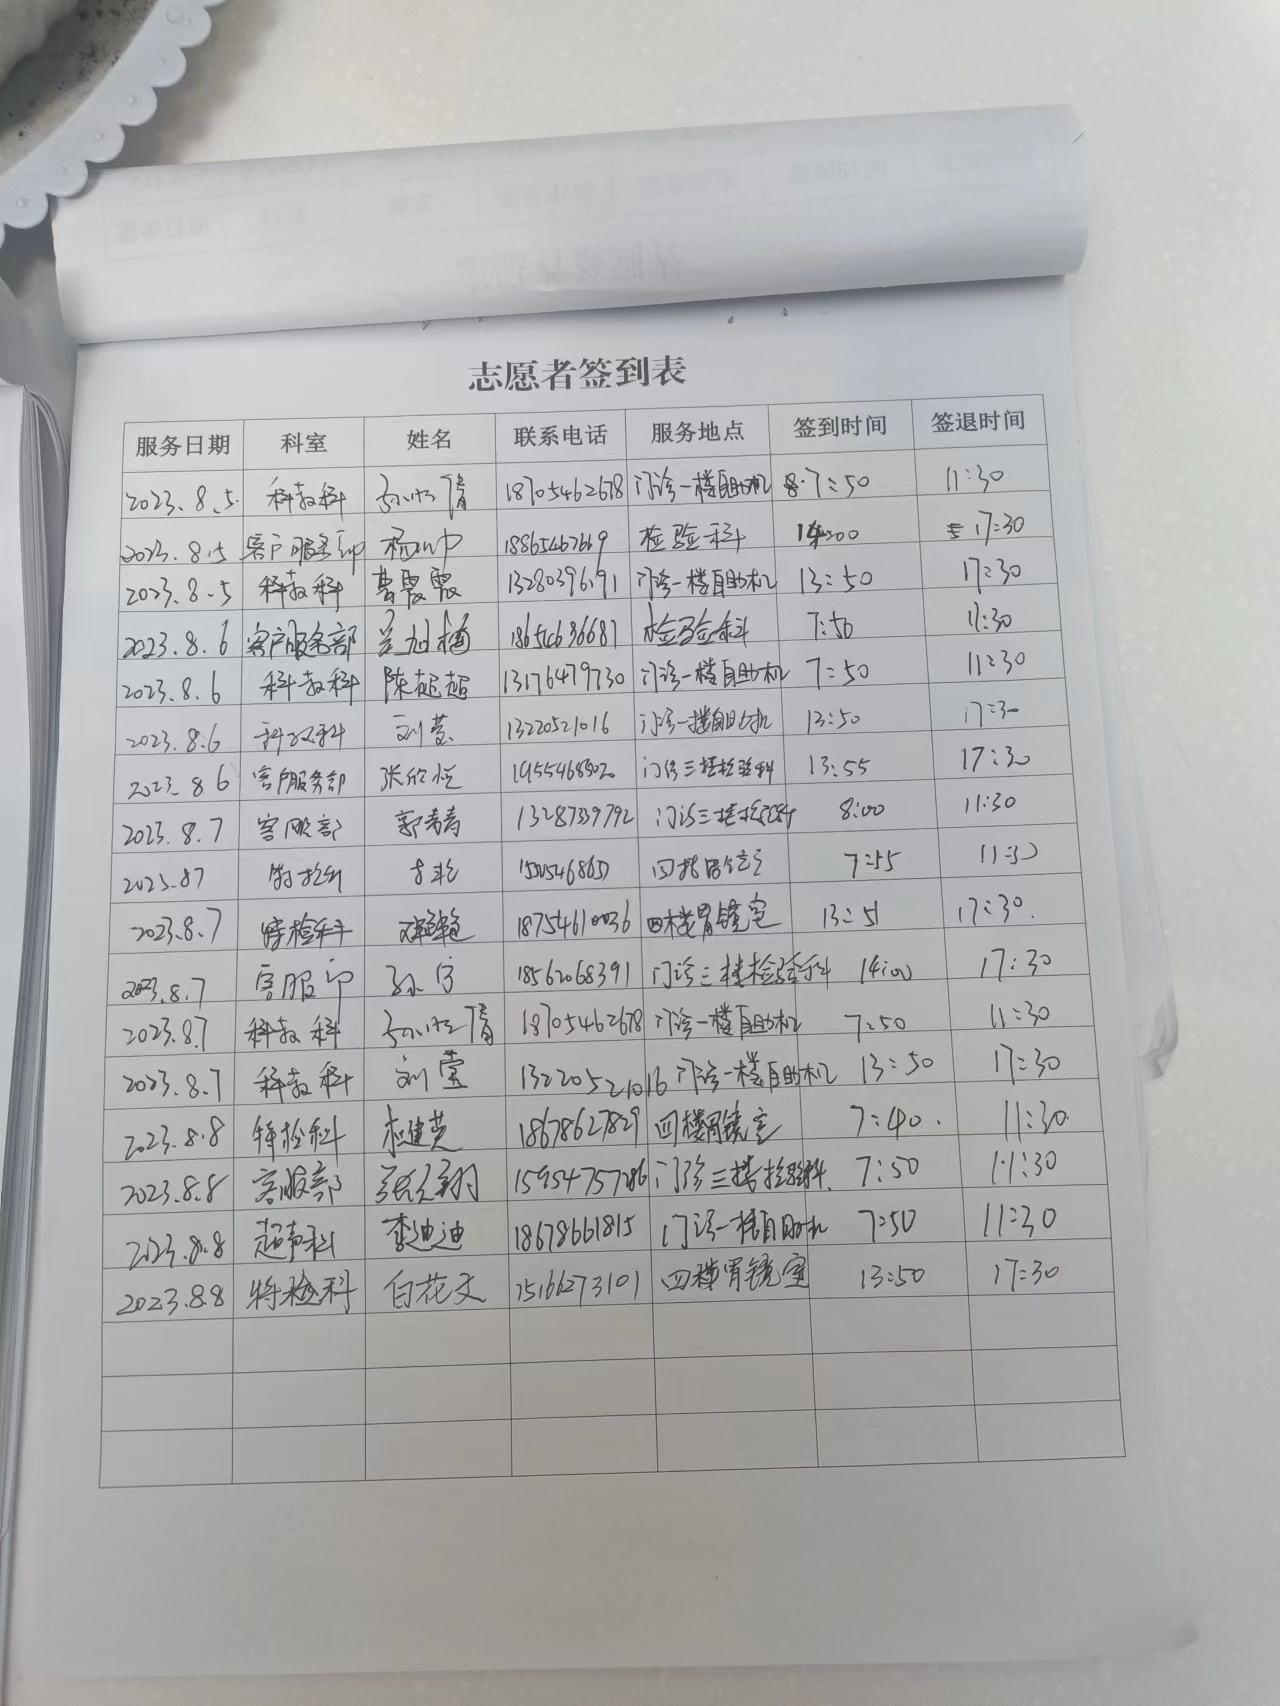 志愿者签到表
服务日期 科室 姓名 联系电话 服务地点 签到时间 签退时间
2023.8.5. 科教科 18705462678 门诊一楼自助机 7:50 11:30
2023.8.5 客户服务部 检验科 14:00 17:30
2023.8.5 科教科 曹霞霞 13280396191 门诊一楼自助机 13:50 17:30
2023.8.6 客户服务部 18654636687 检验科 7:50 11:30
2023.8.6 科教科 陈超超 13176479730 门诊一楼自助机 7:50 11:30
2023.8.6 科教科 刘莹 13220521016 门诊一楼自助机 13:50 17:30
2023.8.6 客户服务部 张欣悦 门诊三楼检验科 13:55 17:30
2023.8.7 客服部 郭青青 13287339792 门诊三楼检验科 8:00 11:30
2023.8.7 特检科 7:55 11:30
2023.8.7 特检科 18754610036 四楼胃镜室 13:51 17:30.
2023.8.7 客服部 18562068391 门诊三楼检验科 14:00 17:30
2023.8.7 科教科 18705462678 门诊一楼自助机 7:50 11:30
2023.8.7 科教科 刘莹 13220521016 门诊一楼自助机 13:50 17:30
2023.8.8 特检科 18678627829 四楼胃镜室 7:40. 11:30
2023.8.8 客服部 15954757286 门诊三楼检验科. 7:50 11:30
2023.8.8 超声科 李迪迪 18678661815 门诊一楼自助机 7:50 11:30
2023.8.8 特检科 白花文 15166273101 四楼胃镜室 13:50 17:30